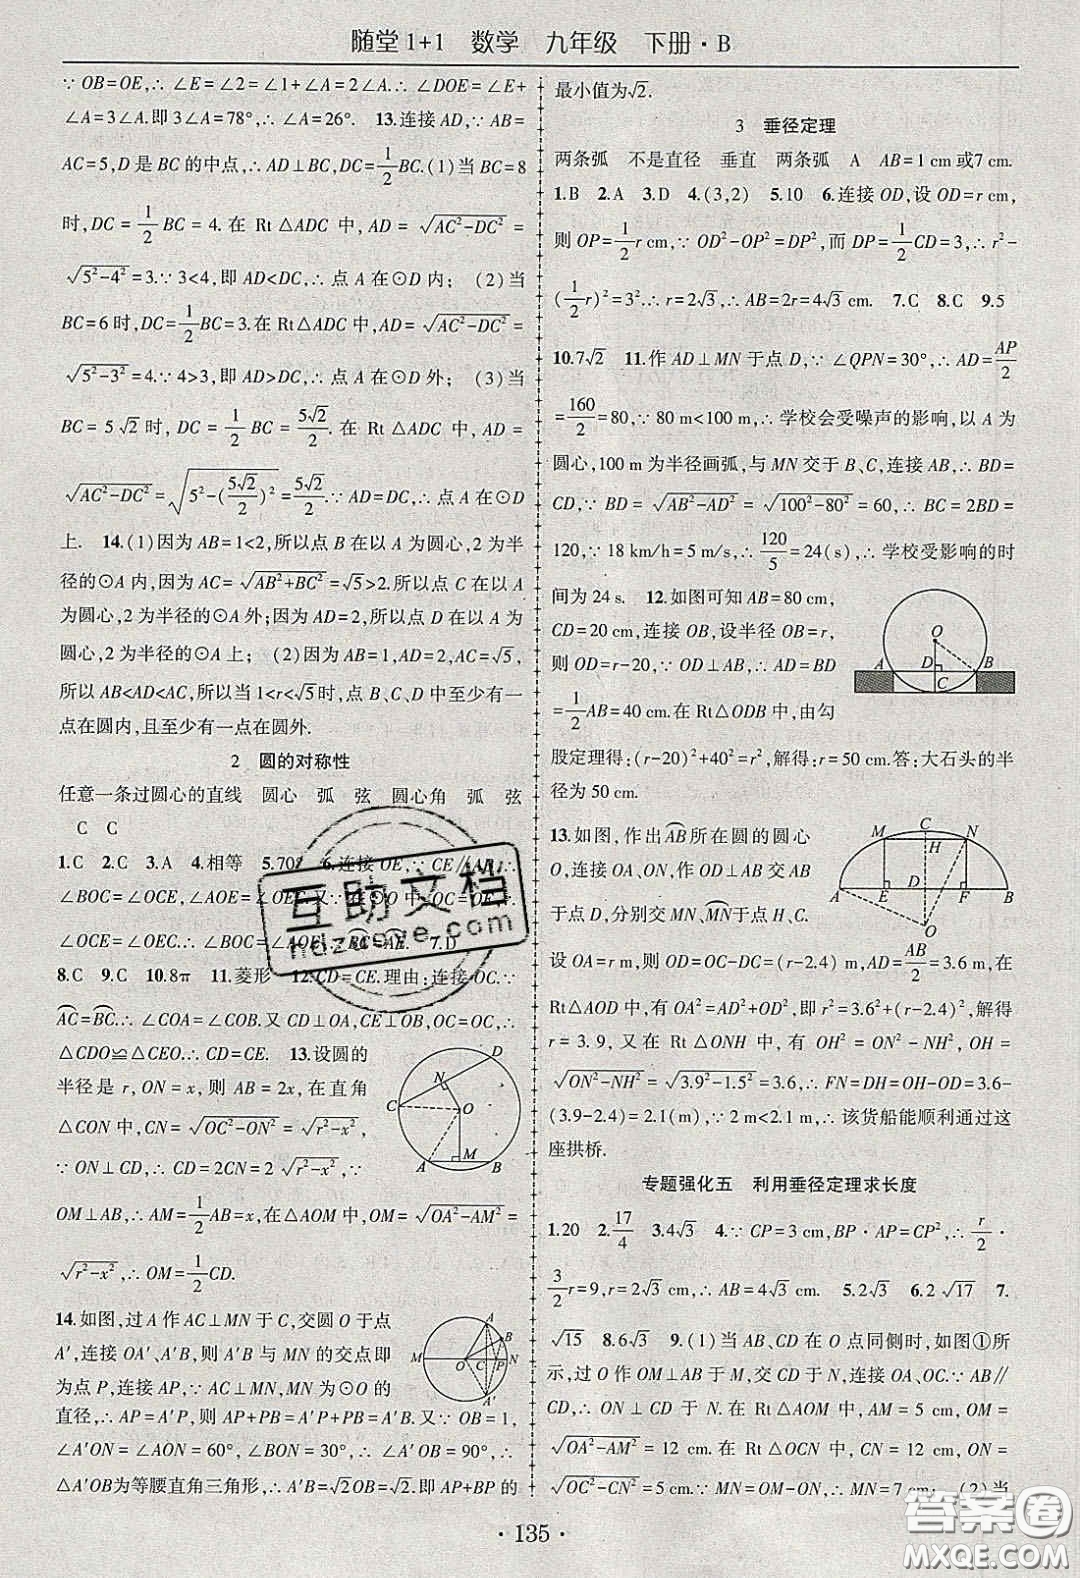 随堂1+1 数学 九年级 下册·B
∵OB=OE,∴∠E=∠2=∠1+∠A=2∠A.∴∠DOE=∠E+
∠A=3∠A.即3∠A=78°,∴∠A=26°. 13.连接AD,∵AB=
AC=5,D是BC的中点,∴AD⊥BC,DC=1/2BC.(1)当BC=8
时,DC=1/2BC=4.在Rt△ADC中,AD=√(AC²-DC²)=
√(5²-4²)=3.∵3<4,即AD<DC,∴点A在⊙D内; (2)当
BC=6时,DC=1/2BC=3.在Rt△ADC中,AD=√(AC²-DC²)=
√(5²-3²)=4.∵4>3,即AD>DC,∴点A在⊙D外; (3)当
BC=5√2时,DC=1/2BC=5√2/2.在Rt△ADC中,AD=
√(AC²-DC²)=√(5²-(5√2/2)²)=5√2/2.∵AD=DC,∴点A在⊙D
上. 14.(1)因为AB=1<2,所以点B在以A为圆心,2为半
径的⊙A内,因为AC=√(AB²+BC²)=√5>2.所以点C在以A
为圆心,2为半径的⊙A外;因为AD=2,所以点D在以A
为圆心,2为半径的⊙A上; (2)因为AB=1,AD=2,AC=√5,
所以AB<AD<AC,所以当1<r<√5时,点B、C、D中至少有一
点在圆内,且至少有一点在圆外.
2 圆的对称性
任意一条过圆心的直线 圆心 弧 弦 圆心角 弧 弦
C C
1.C 2.C 3.A 4.相等 5.70° 6.连接OE,∵CE∥AB,∴
∠BOC=∠OCE,∠AOE=∠OEC.又∵在⊙O中,OC=OE,∴
∠OCE=∠OEC.∴∠BOC=∠AOE,∴BC=AE. 7.D
8.C 9.C 10.8π 11.菱形 12.CD=CE.理由:连接OC.∵
AC=BC.∴∠COA=∠COB.又CD⊥OA,CE⊥OB,OC=OC,∴
△CDO≌△CEO.∴CD=CE. 13.设圆的
半径是r,ON=x,AB=2x,在直角
△CON中,CN=√(OC²-ON²)=√(r²-x²),
∵ON⊥CD,∴CD=2CN=2√(r²-x²).∵
OM⊥AB,∴AM=1/2AB=x,在△AOM中,OM=√(OA²-AM²)=
√(r²-x²),∴OM=1/2CD.
D
N
C
O
A
M
B
14.如图,过A作AC⊥MN于C,交圆O于点
A′,连接OA′、A′B,A′B与MN的交点即
为点P,连接AP,∵AC⊥MN,MN为⊙O的
直径,∴AP=A′P,则AP+BP=A′P+BP=A′B.又∵OB=1,
∠A′ON=∠AON=60°,∠BON=30°,∴∠A′OB=90°,∴
△A′OB为等腰直角三角形,∴A′B=√2OB=√2.即AP+BP的
A
B
M
O
C
P
N
A′
最小值为√2.
3 垂径定理
两条弧 不是直径 垂直 两条弧 A AB=1 cm或7 cm.
1.B 2.A 3.D 4.(3,2) 5.10 6.连接OD,设OD=r cm,
则OP=1/2r cm,∵OD²-OP²=DP²,而DP=1/2CD=3,∴r²-
(1/2r)²=3².∴r=2√3,∴AB=2r=4√3 cm. 7.C 8.C 9.5
10.7√2 11.作AD⊥MN于点D,∵∠QPN=30°,∴AD=AP/2
=160/2=80,∵80 m<100 m,∴学校会受噪声的影响,以A为
圆心,100 m为半径画弧,与MN交于B、C,连接AB,∴BD=
CD,∵BD=√(AB²-AD²)=√(100²-80²)=60,∴BC=2BD=
120,∵18 km/h=5 m/s,∴120/5=24(s),∴学校受影响的时
间为24 s. 12.如图可知AB=80 cm,
CD=20 cm,连接OB,设半径OB=r,
则OD=r-20,∵OD⊥AB,∴AD=BD
=1/2AB=40 cm.在Rt△ODB中,由勾
股定理得:(r-20)²+40²=r²,解得:r=50 cm.答:大石头的半
径为50 cm.
O
A
D
B
C
13.如图,作出AB所在圆的圆心
O,连接OA、ON,作OD⊥AB交AB
于点D,分别交MN、MN于点H、C.
设OA=r m,则OD=OC-DC=(r-2.4)m,AD=AB/2=3.6 m,在
Rt△AOD中,有OA²=AD²+OD²,即r²=3.6²+(r-2.4)²,解得
r=3.9,又在Rt△ONH中,有OH²=ON²-NH²,OH=
√(ON²-NH²)=√(3.9²-1.5²)=3.6,∴FN=DH=OH-OD=3.6-
(3.9-2.4)=2.1(m),∵2 m<2.1 m,∴该货船能顺利通过这
座拱桥.
C
M
N
H
A
E
D
F
B
O
专题强化五 利用垂径定理求长度
1.20 2.17/4 3.4√3 4.∵CP=3 cm,BP·AP=CP²,∴r/2·
3/2r=9,r=2√3 cm,∴AB=4√3 cm. 5.2√3 6.2√17 7.
√15 8.6√3 9.(1)当AB、CD在O点同侧时,如图①所
示,过O作OM⊥AB于M,交CD于N,连接OA、OC.∵AB∥
CD,∴OM⊥CD于N.在Rt△AOM中,AM=5 cm,OM=
√(OA²-AM²)=12 cm.在Rt△OCN中,CN=12 cm,ON=
√(OC²-CN²)=5 cm.∵MN=OM-ON,∴MN=7 cm; (2)当
·135·
互助文档
hdzuoye.com
答案圈
MXQE.COM